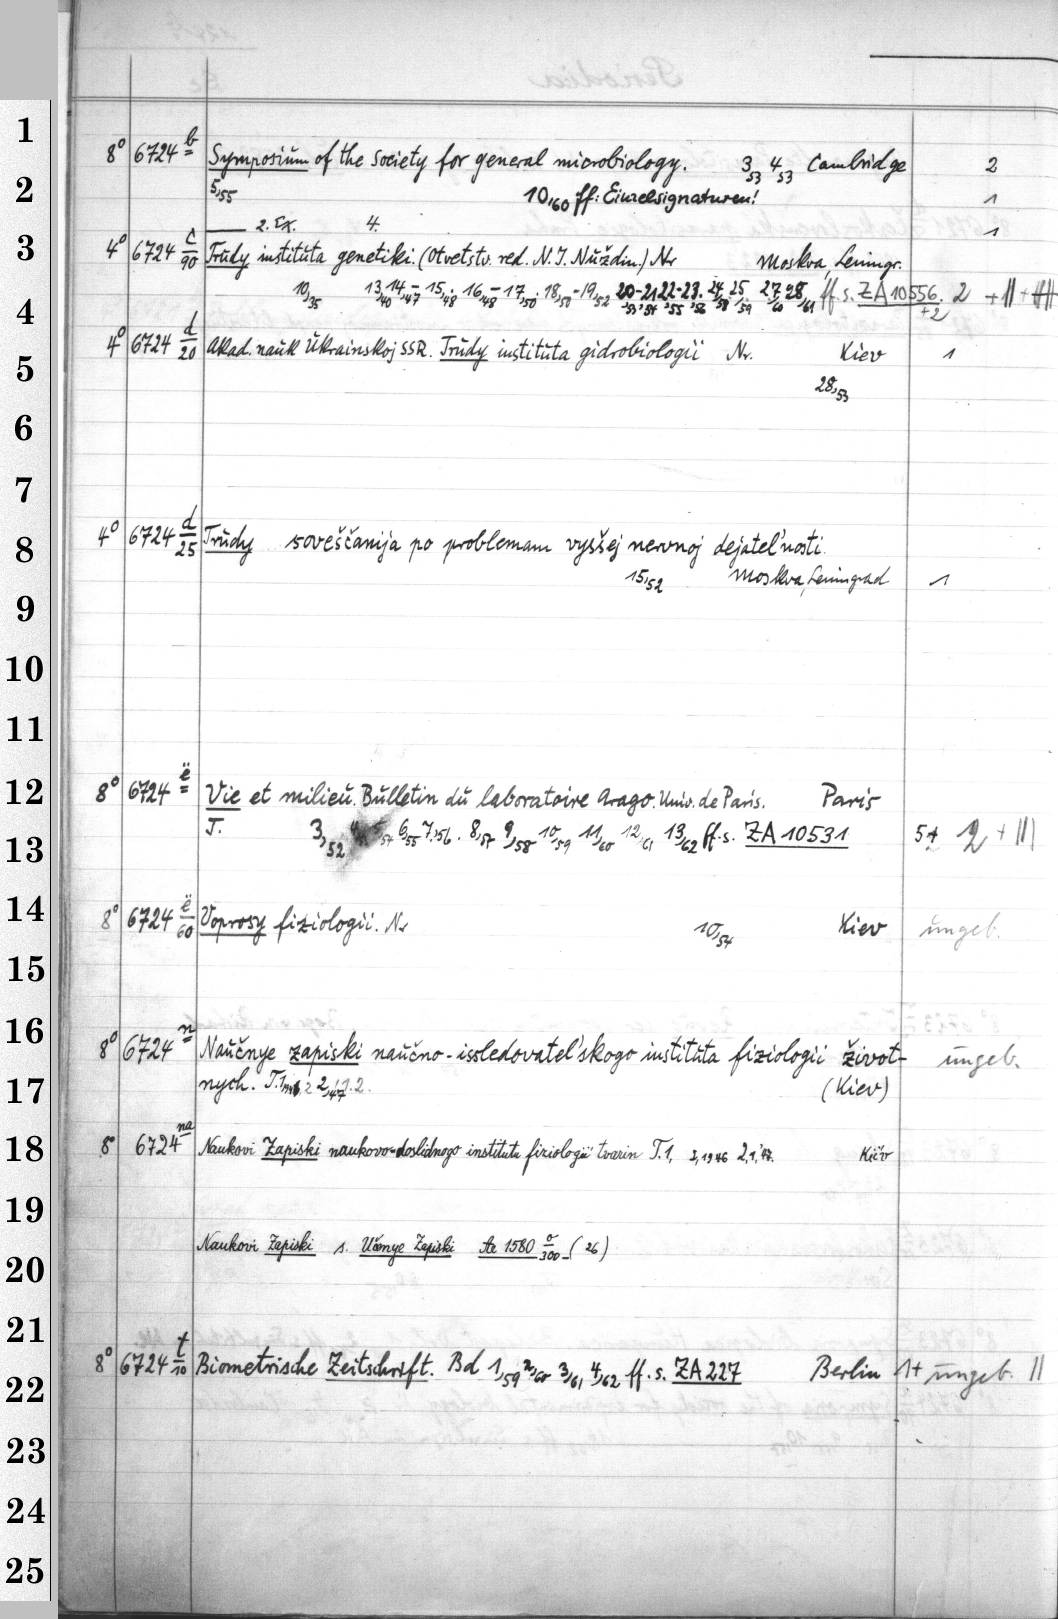 1
8° 6724 b Symposium of the Society for general microbiology. 3,53 4,53 Cambridge 2
2
5,55 10,60 ff: Einzelsignaturen! 1
2. Ex. 4. 1
3
4° 6724 c/90 Trudy instituta genetiki. (Otvetstv. red. N. I. Nuždin.) Nr Moskva, Leningr.
10,35 13,40 14,47 - 15,48 . 16,48 - 17,50 . 18,50 - 19,52 20-21 22-23. 24,58 25,59 27,60 28,61 ff s. ZA 10556. 2 + || +
4
+2
4° 6724 d/20 Akad. nauk Ukrainskoj SSR. Trudy instituta gidrobiologii Nr. Kiev 1
5
28,53
6
7
4° 6724 d/25 Trudy soveščanija po problemam vysšej nervnoj dejatel'nosti.
8
15,52 Moskva, Leningrad 1
9
10
11
12
8° 6724 ë Vie et milieu. Bulletin du laboratoire Arago. Univ. de Paris. Paris
T. 3,52 6,55 7,56 . 8,57 9,58 10,59 11,60 12,61 13,62 ff. s. ZA 10531 5+ 2 + |||
13
14
8° 6724 ë/60 Voprosy fiziologii. Nr 10,54 Kiev ungeb.
15
16
8° 6724 n Naučnye zapiski naučno-issledovatel'skogo instituta fiziologii život- ungeb.
17
nych. T. (Kiev)
18
8° 6724 na Naukovi Zapiski naukovo-doslidnogo institutu fiziologii tvarin T. 1, 2,1946 2,1,'47. Kiïv
19
Naukovi Zapiski s. Učenye Zapiski Ae 1580 o/300 (26)
20
21
8° 6724 t/10 Biometrische Zeitschrift. Bd 1,59 2,60 3,61 4,62 ff. s. ZA 227 Berlin 1+ ungeb. ||
22
23
24
25